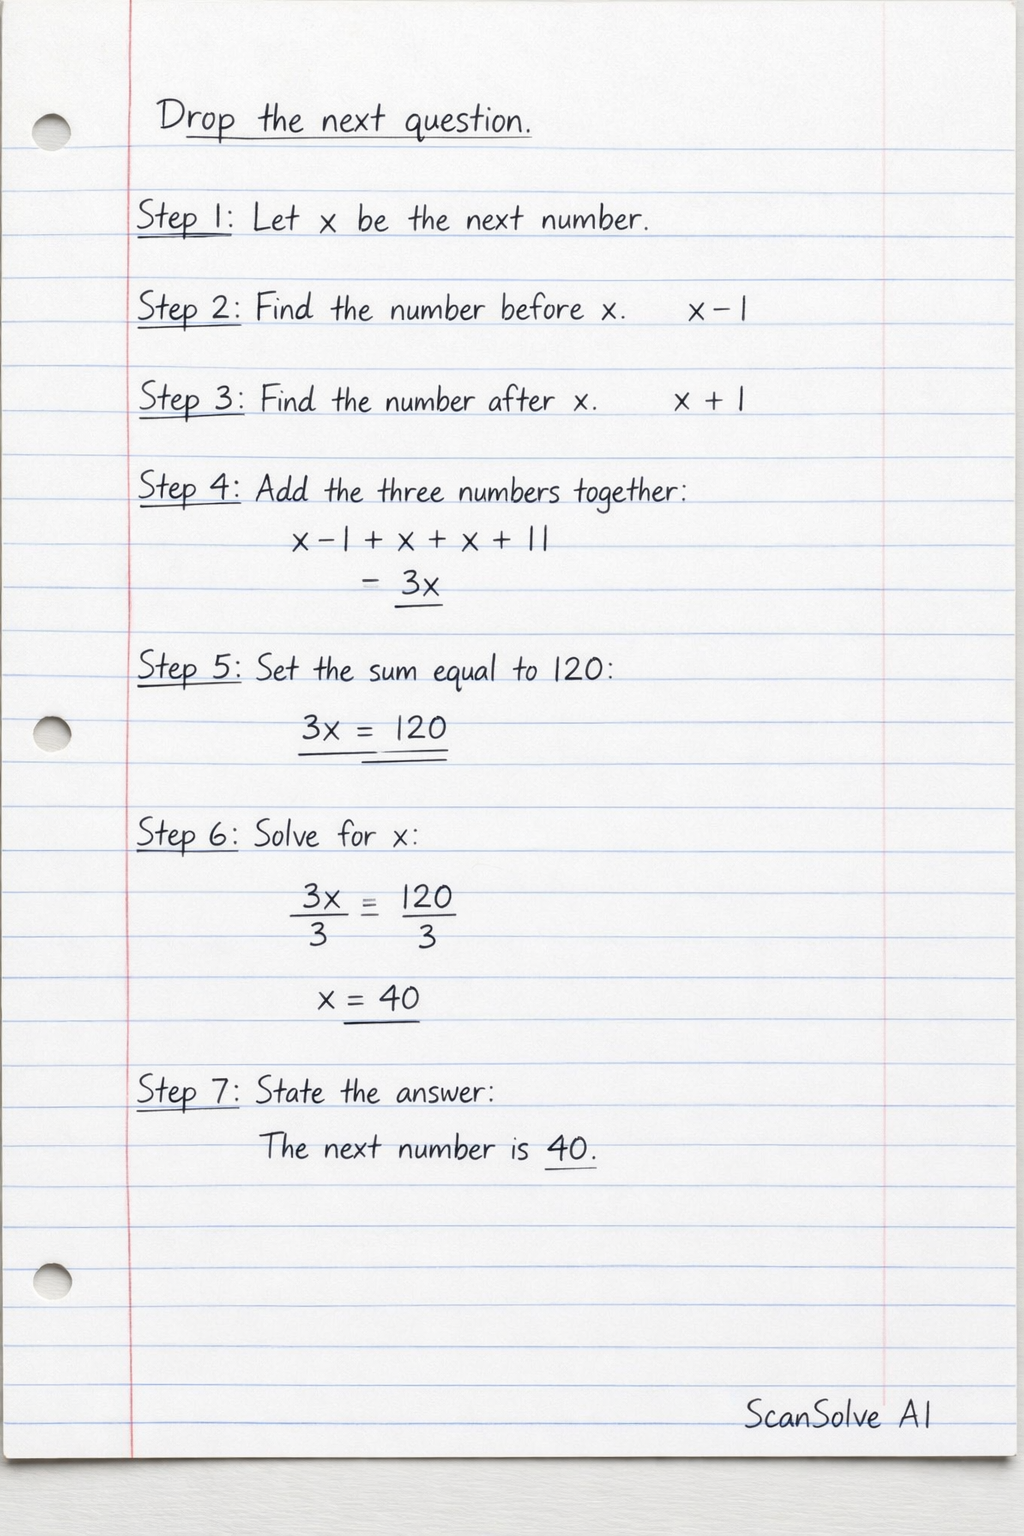 Drop the next question.
Step 1: Let x be the next number.
Step 2: Find the number before x. x - 1
Step 3: Find the number after x. x + 1
Step 4: Add the three numbers together:
x - 1 + x + x + 11
- 3x
Step 5: Set the sum equal to 120:
3x = 120
Step 6: Solve for x:
3x/3 = 120/3
x = 40
Step 7: State the answer:
The next number is 40.
ScanSolve AI